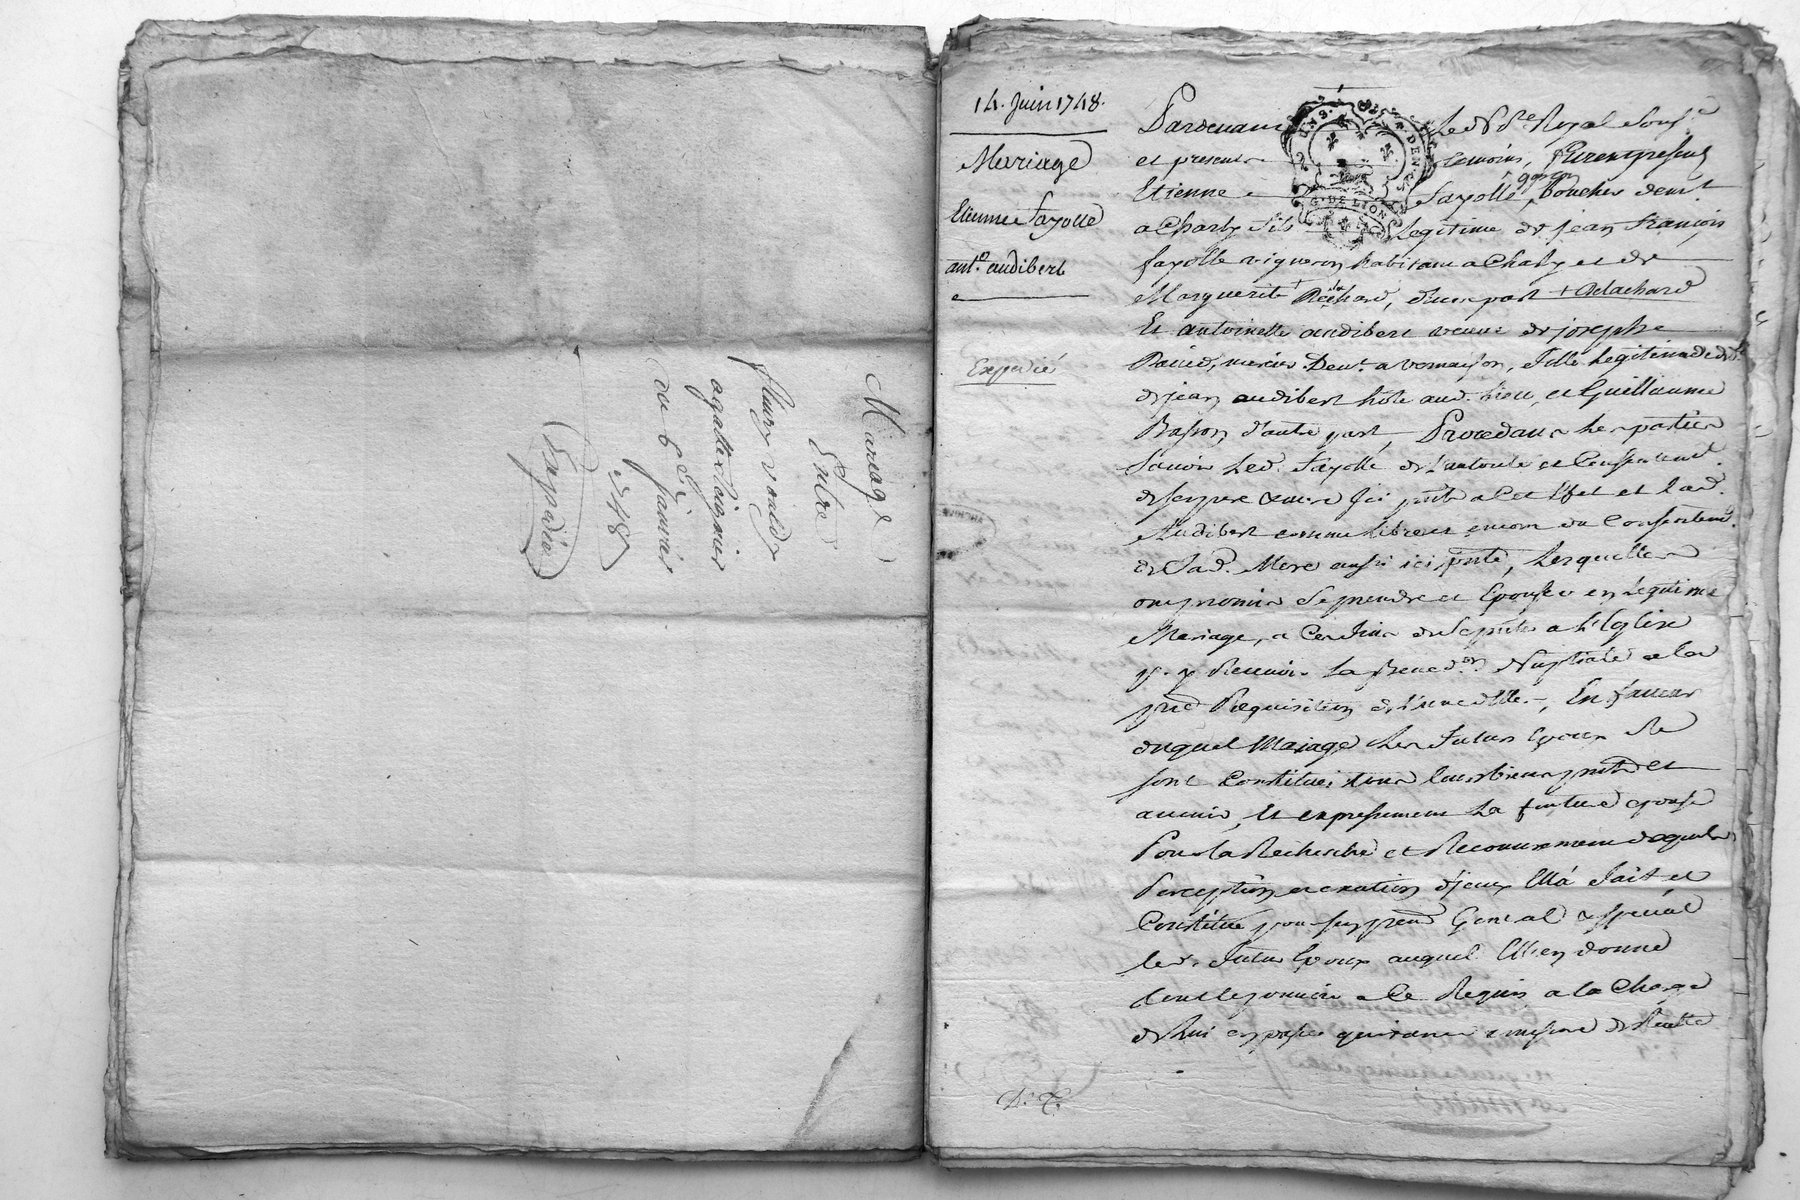 Mariage
Entre
fleury
agathe
du 6e janvier
1748
Expedié
14. Juin 1748.
Mariage
Etienne Fayolle
ant.e audibert
Expedié
Pardevant Le Nre Royal Sousé
et presents temoins, furent presents
Etienne Fayolle, garçon Boucher demt
a Charly fils Legitime de jean François
fayolle vigneron habitant a Charly et de
Marguerite Delachard, d'une part + Delachard
Et antoinette audibert veuve de josephe
mercier Demt a vernaison, fille Legitime de
de jean audibert hôte aud. Lieu, et Guillaume
Basson d'autre part, Procedant Les parties
Savoir Led. Fayolle de l'autorité et Consentement
de ses pere et mere Ici pnts a Cet effet et Lad.
Audibert comme Libre et encore du Consentemt
de Sad. Mere aussi ici pnte, Lesquelles
ont promis Se prendre et Epouser en Legitime
Mariage, a Ces fins de Se pnter a L'Eglise
pr y Recevoir La Bened.on Nuptiale a la
pre Requisition de l'une d'Elles, En faveur
duquel Mariage Les Futurs Epoux Se
sont Constitués tous leurs biens pnts et
avenir, Et expressement La future epouse
Pour la Recherche et Recouvrement desquels
Perception et exaction d'iceux Ella fait et
Constitué pour son Procr General et special
led. Futur Epoux auquel Elle en donne
tout le pouvoir a Ce Requis a la Charge
de Lui en passer quittance a mesure de Recette
G. DE LION